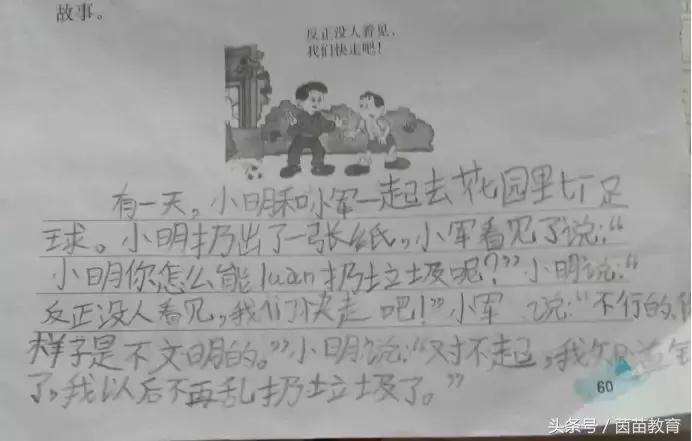 故事。
反正没人看见，
我们快走吧！
有一天，小明和小军一起去花园里打足
球。小明扔出了一张纸，小军看见了说：“
小明你怎么能luan扔垃圾呢？”小明说：“
反正没人看见，我们快走吧！”小军说：“不行的，
样子是不文明的。”小明说：“对不起，我知道
了，我以后不再乱扔垃圾了。”
60
头条号／茵苗教育